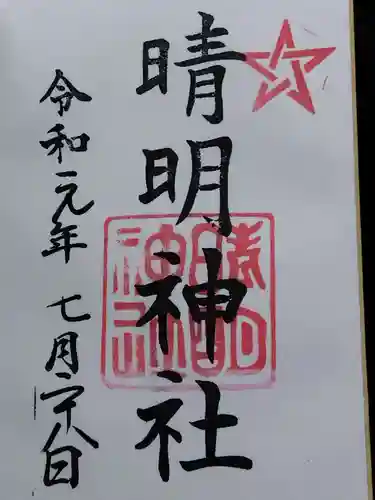 晴明神社
令和元年 七月二十八日
晴明神社